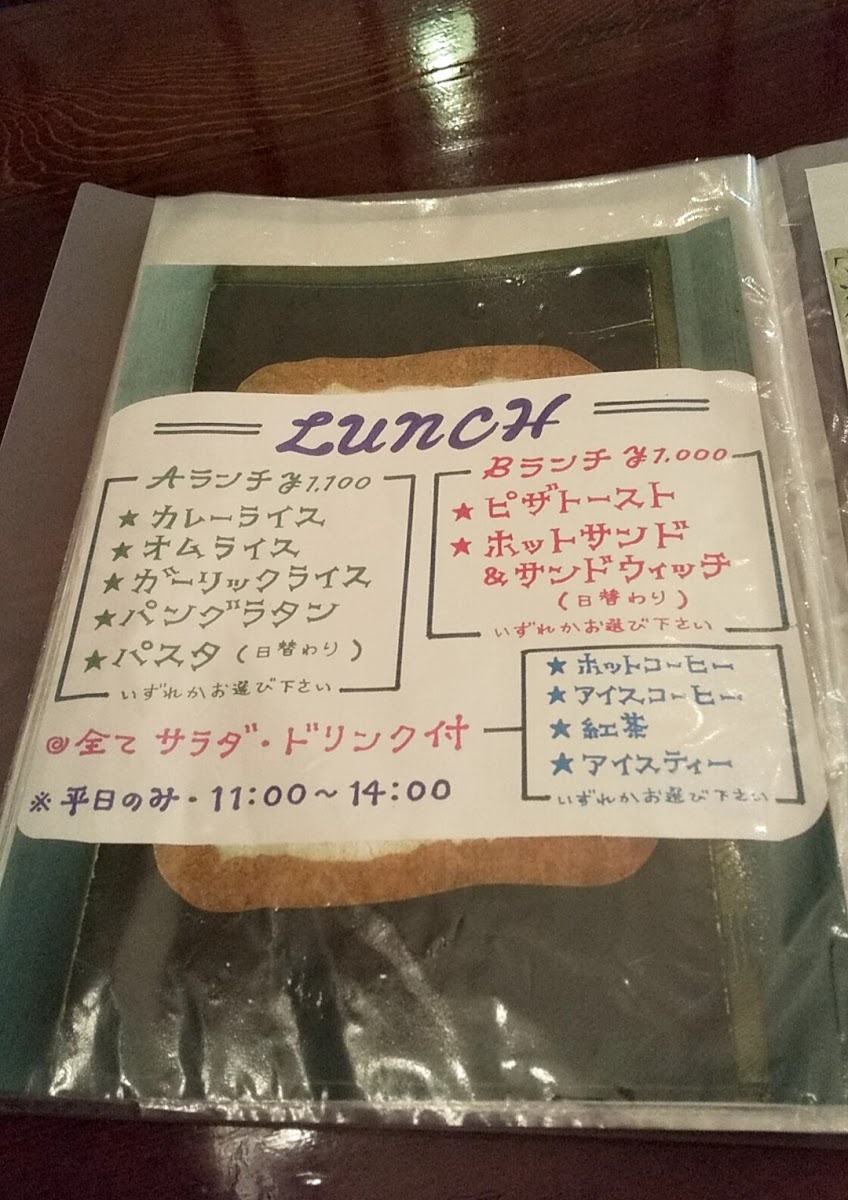 LUNCH
Aランチ ¥1,100
★ カレーライス
★ オムライス
★ ガーリックライス
★ パングラタン
★ パスタ (日替わり)
いずれかお選び下さい
Bランチ ¥1,000
★ ピザトースト
★ ホットサンド
&サンドウィッチ
(日替わり)
いずれかお選び下さい
◎全て サラダ・ドリンク付
★ ホットコーヒー
★ アイスコーヒー
★ 紅茶
★ アイスティー
いずれかお選び下さい
※平日のみ・11:00~14:00